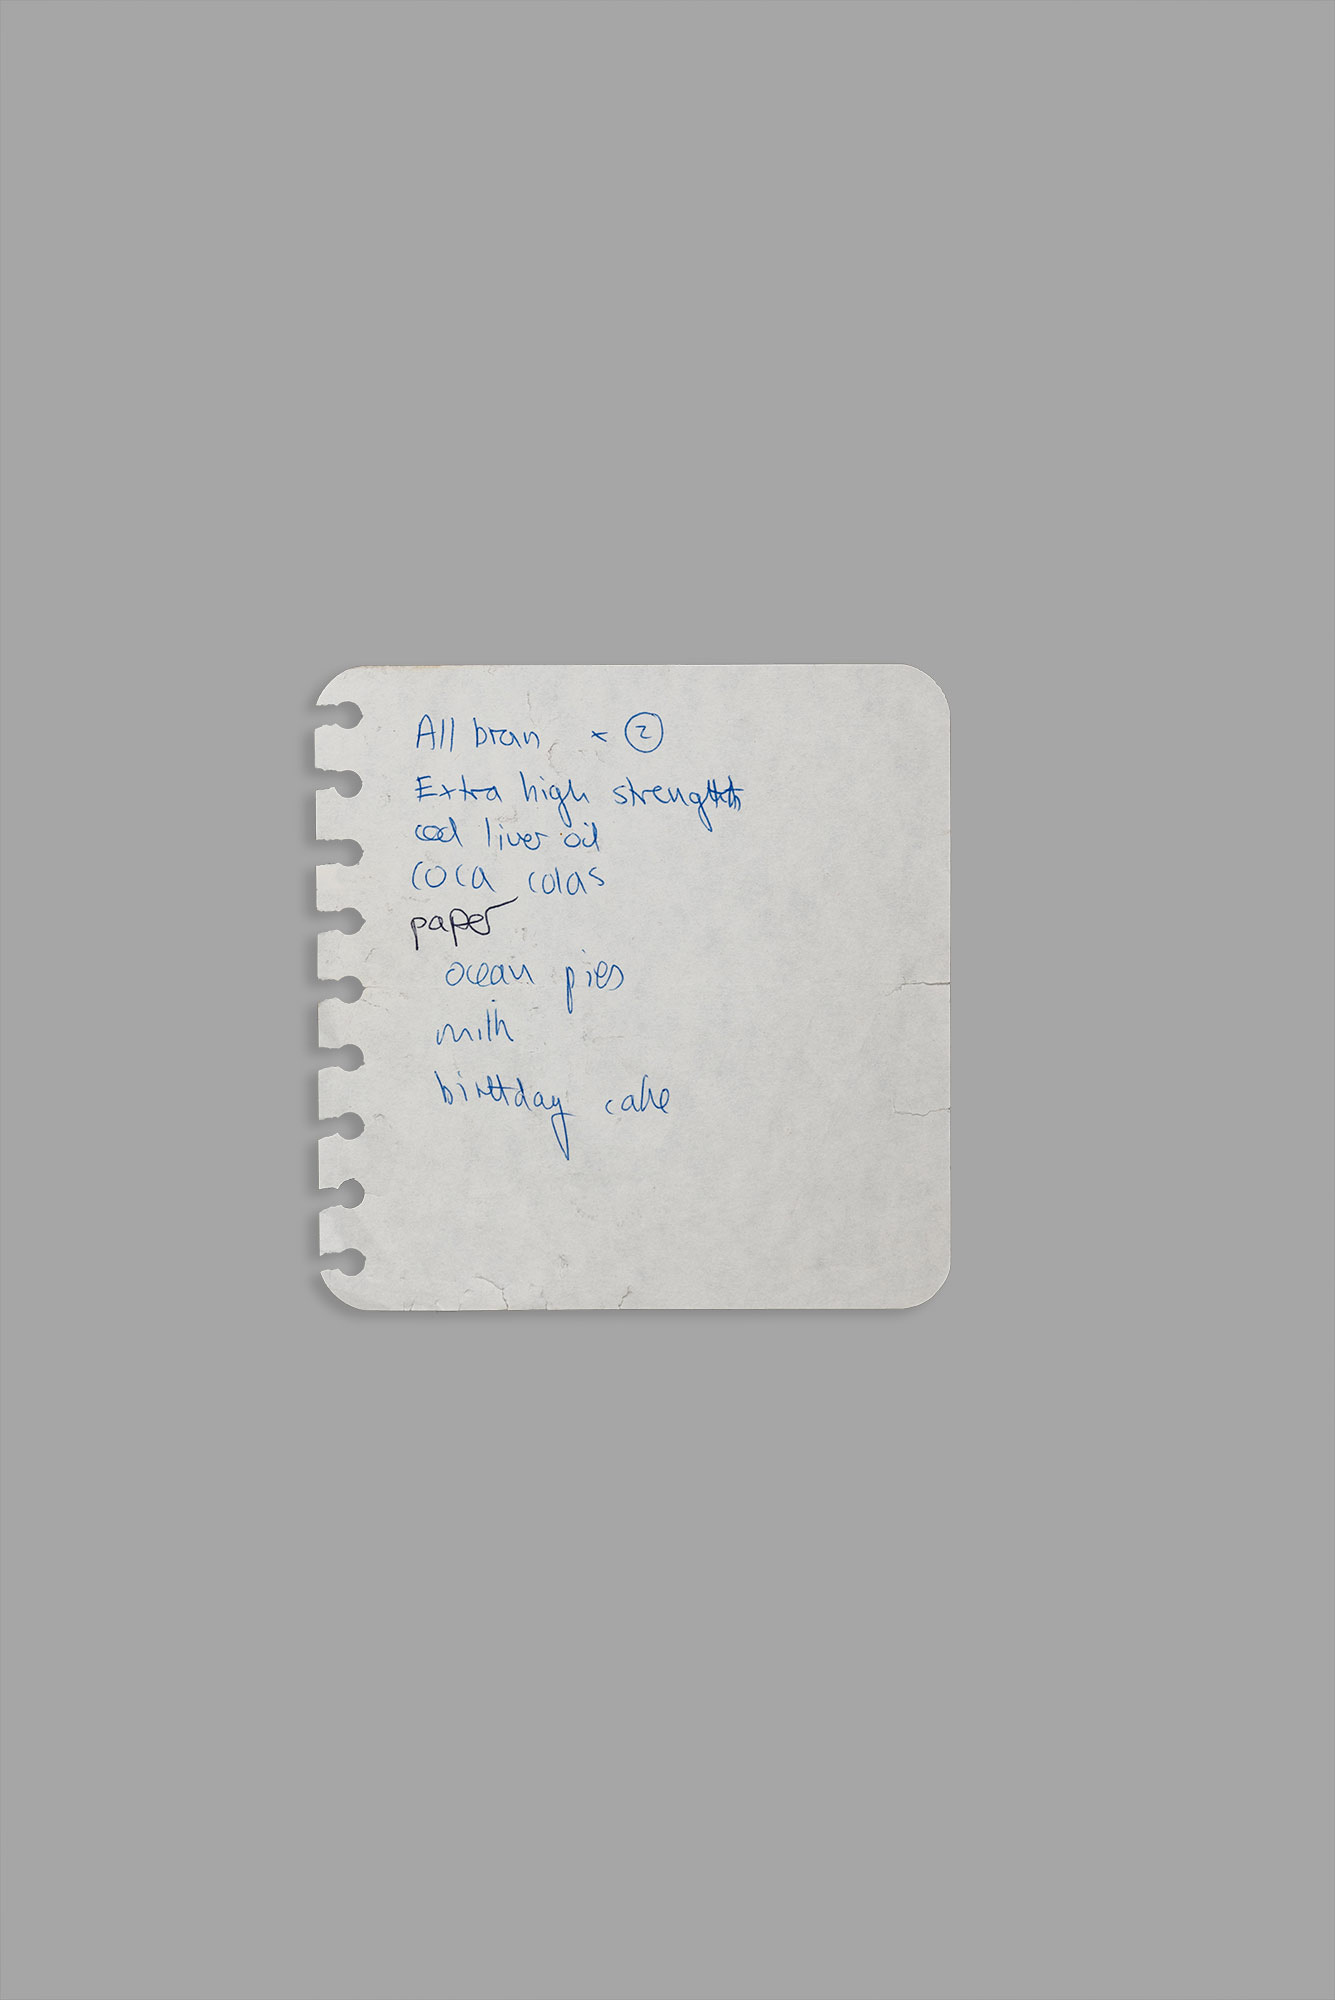 All bran x 2
Extra high strength
cod liver oil
coca colas
paper
ocean pies
milk
birthday cake